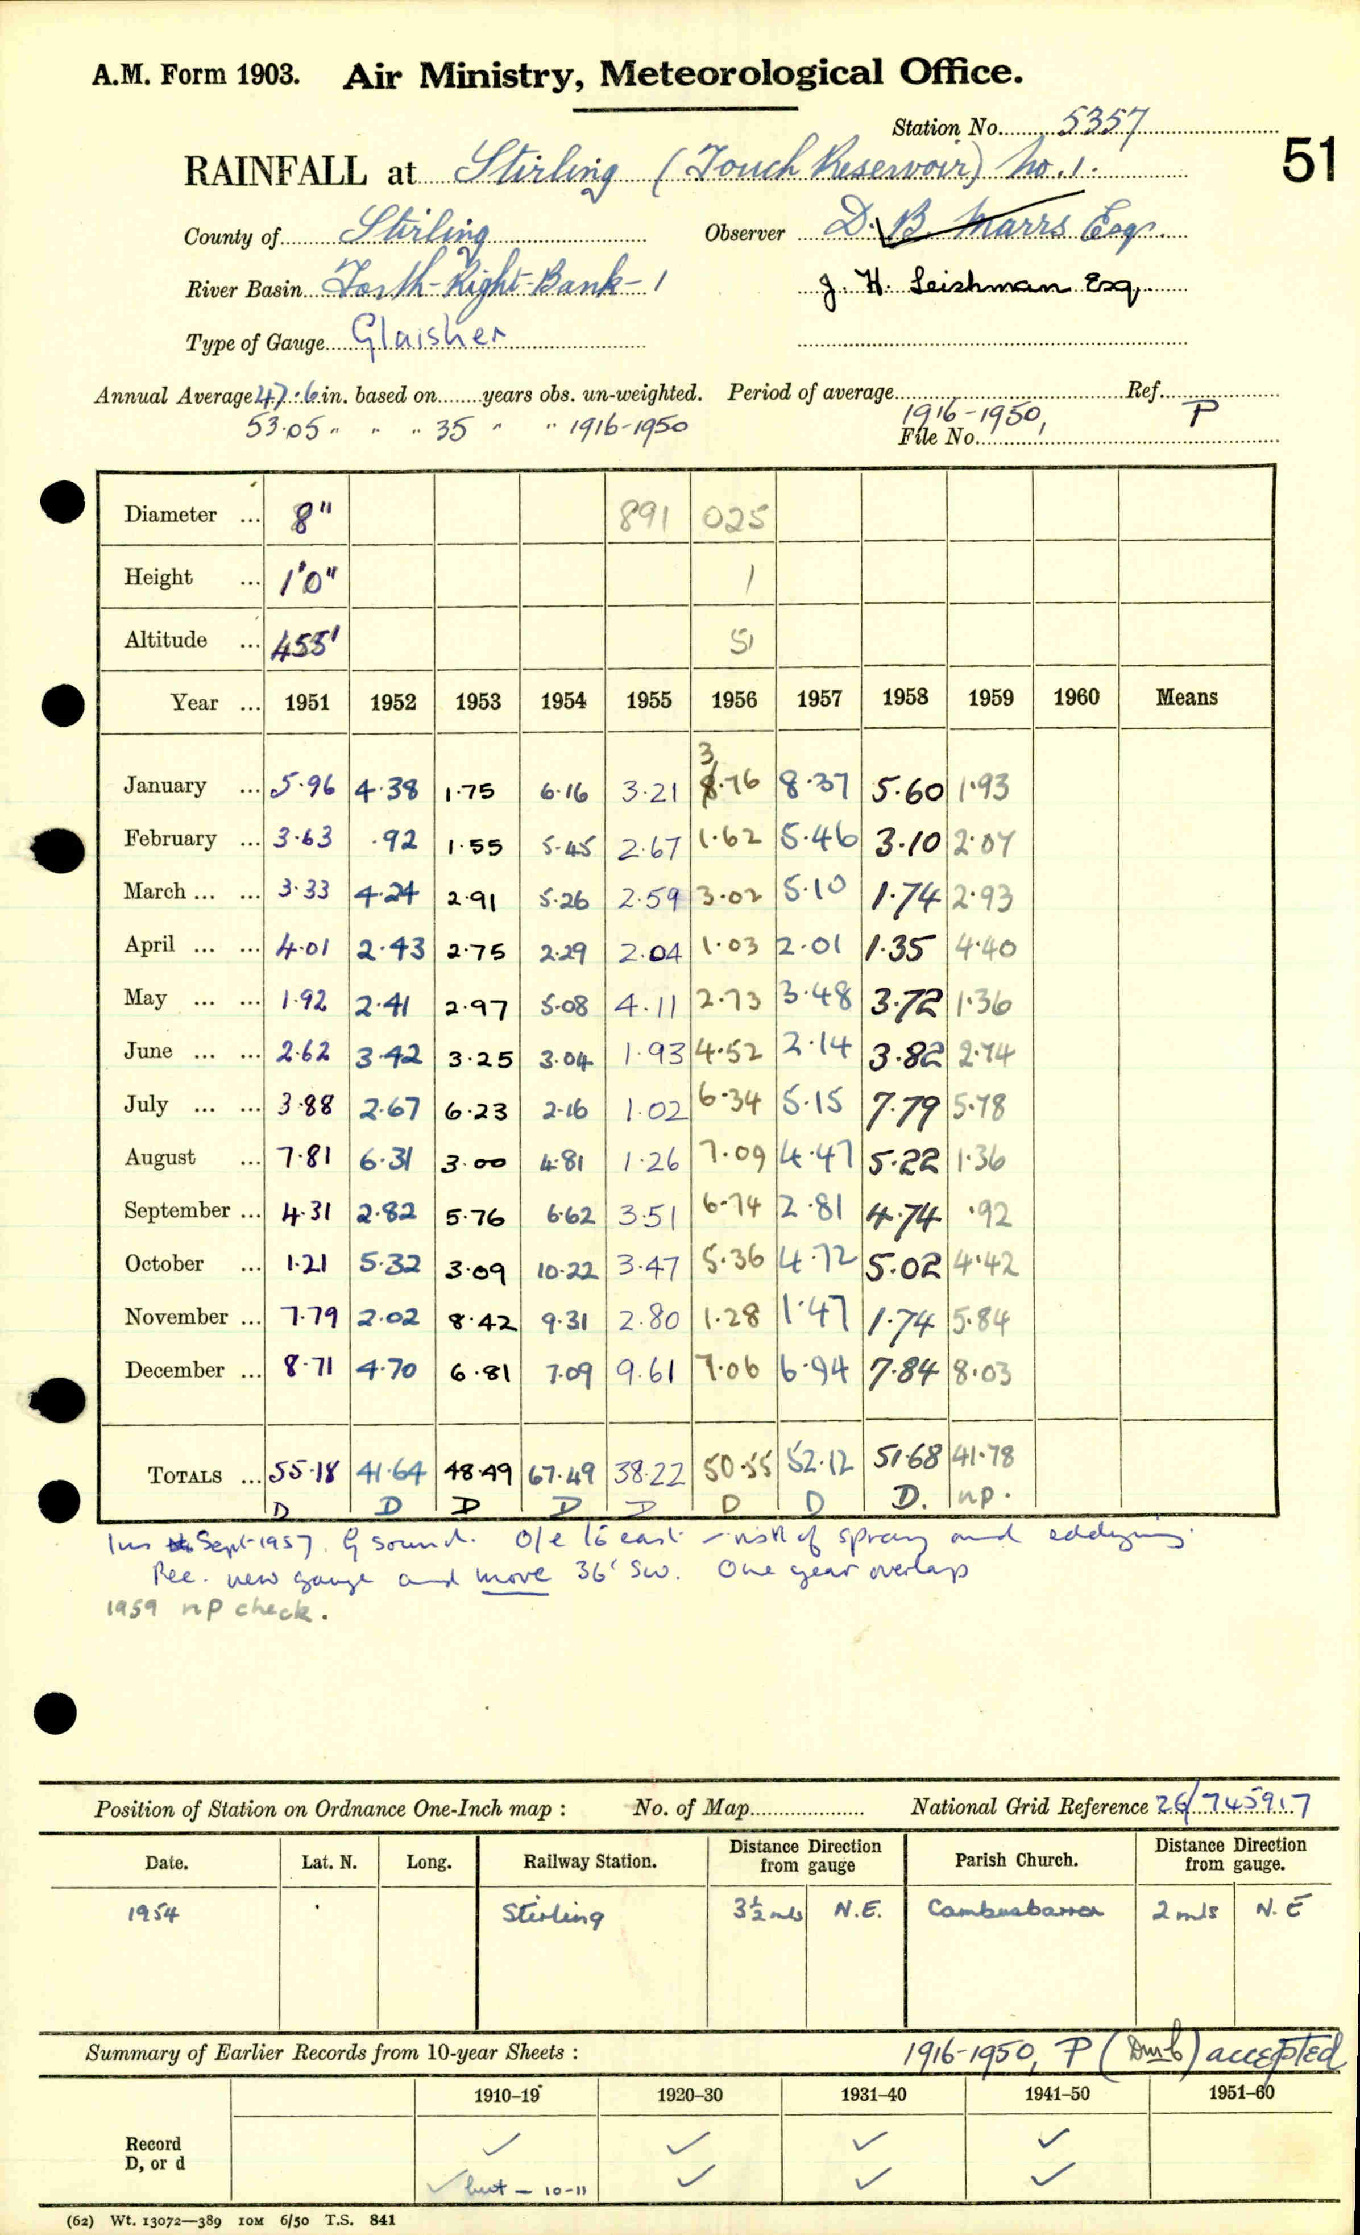 A.M. Form 1903. Air Ministry, Meteorological Office.
Station No. 5357
51
RAINFALL at Stirling (Touch Reservoir) No. 1.
County of Stirling Observer D. B. Marrs Esq.
River Basin Forth-Right-Bank-1 J. H. Leishman Esq.
Type of Gauge Glaisher
Annual Average 47.6 in. based on years obs. un-weighted. Period of average Ref.
53.05 " " " 35 " " 1916-1950 1916-1950, P
File No.
Diameter ... 8" 891 025
Height ... 1'0" 1
Altitude ... 455' 51
Year ... 1951 1952 1953 1954 1955 1956 1957 1958 1959 1960 Means
3
January ... 5.96 4.38 1.75 6.16 3.21 8.76 8.37 5.60 1.93
February ... 3.63 .92 1.55 5.45 2.67 1.62 5.46 3.10 2.07
March ... ... 3.33 4.24 2.91 5.26 2.59 3.02 5.10 1.74 2.93
April ... ... 4.01 2.43 2.75 2.29 2.04 1.03 2.01 1.35 4.40
May ... ... 1.92 2.41 2.97 5.08 4.11 2.73 3.48 3.72 1.36
June ... ... 2.62 3.42 3.25 3.04 1.93 4.52 2.14 3.82 2.74
July ... ... 3.88 2.67 6.23 2.16 1.02 6.34 5.15 7.79 5.78
August ... 7.81 6.31 3.00 4.81 1.26 7.09 4.47 5.22 1.36
September ... 4.31 2.82 5.76 6.62 3.51 6.74 2.81 4.74 .92
October ... 1.21 5.32 3.09 10.22 3.47 5.36 4.72 5.02 4.42
November ... 7.79 2.02 8.42 9.31 2.80 1.28 1.47 1.74 5.84
December ... 8.71 4.70 6.81 7.09 9.61 7.06 6.94 7.84 8.03
TOTALS ... 55.18 41.64 48.49 67.49 38.22 50.55 52.12 51.68 41.78
D D D D D D D D. np.
Ins Sept-1957. G sound. O/e to east - risk of spray and eddying.
Rec. new gauge and move 36' SW. One year overlap
1959 np check.
Position of Station on Ordnance One-Inch map : No. of Map National Grid Reference 26/745917
Date. Lat. N. Long. Railway Station. Distance Direction from gauge Parish Church. Distance Direction from gauge.
1954 Stirling 3½ mls N.E. Cambusbarron 2 mls N.E
Summary of Earlier Records from 10-year Sheets : 1916-1950, P (Dmb) accepted
1910–19 1920–30 1931–40 1941–50 1951–60
Record ✓ ✓ ✓ ✓
D, or d ✓ but - 10-11 ✓ ✓ ✓
(62) Wt. 13072—389 10M 6/50 T.S. 841